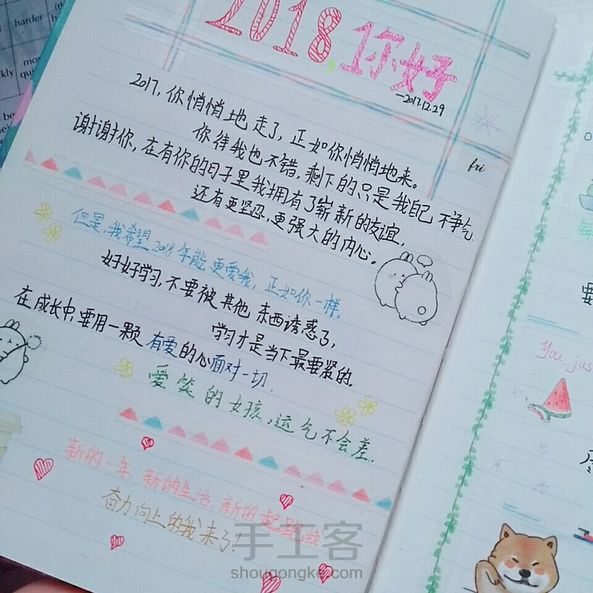 harder
2018,你好
—2017.12.29
2017,你悄悄地走了,正如你悄悄地来。
你待我也不错,剩下的只是我自己不争气
fri
谢谢你,在有你的日子里我拥有了崭新的友谊,
还有更坚强,更强大的内心。
但是,我希望2018年能更爱我,正如你一样。
好好学习,不要被其他东西诱惑了,
学习才是当下最要紧的.
在成长中,要用一颗有爱的心面对一切.
爱笑的女孩,运气不会差.
新的一年,新的生活,新的起跑线
奋力向上的我来了!
You jus
手工客
shougongke.com